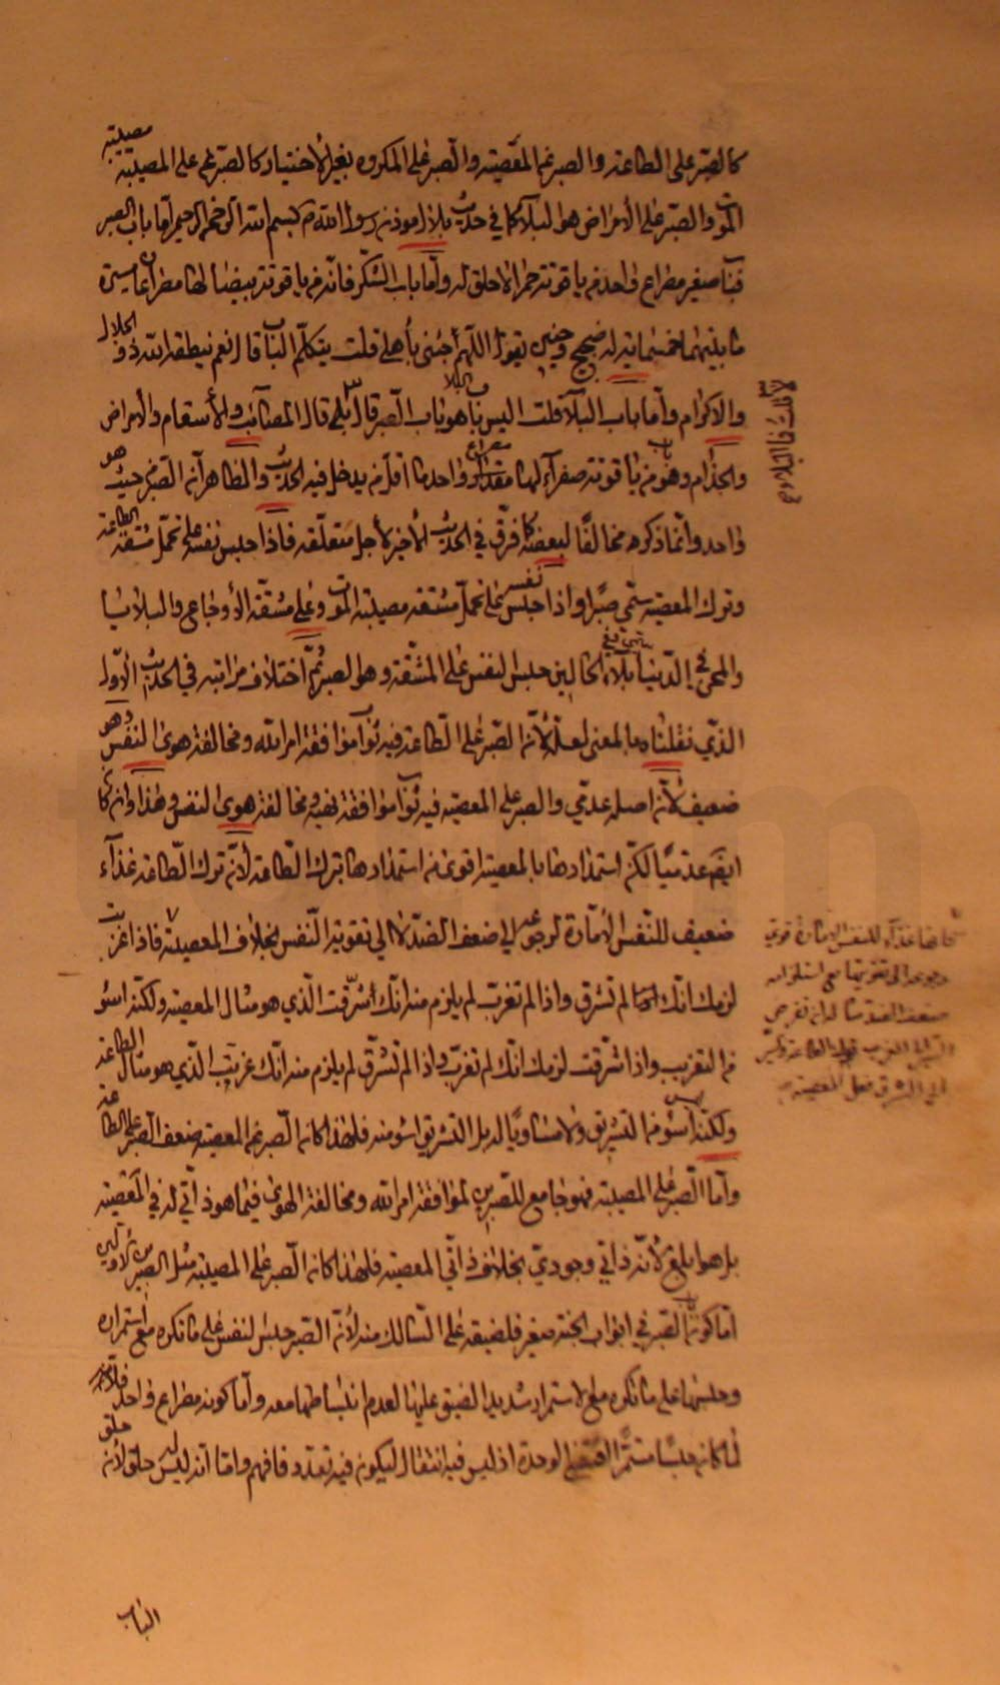 كالصبر على الطاعة والصبر عن المعصية والصبر على المكروه بغير الاختيار كالصبر على المصيبة مصيبة
الموت والصبر على الامراض هو البلاء كما في حديث بلال مؤذن رسول الله ص بسم الله الرحمن الرحيم اما باب الصبر
فباب صغير مصراع واحد من ياقوتة حمراء لا حلق له واما باب الشكر فانه من ياقوتة بيضاء لها مصراعان مسيرة
ما بينهما خمسمائة له ضجيج وحنين يقول اللهم جئني باهلي قلت يتكلم الباب قال نعم ينطقه الله ذو الجلال
والاكرام واما باب البلاء قلت اليس باب البلاء هو باب الصبر قال لا قلت فما البلاء قال المصائب والاسقام والامراض
والجذام وهو باب من ياقوتة صفراء لها مصراع واحد ما اقل من يدخل فيه الحديث والظاهر ان الصبر من حيث هو
واحد وانما ذكره مخالفا لبعضه كما فرق في الحديث الاخير لاجل متعلقه فاذا حبس نفسه على تحمل مشقة الطاعة
وترك المعصية سمي صبرا واذا حبس نفسه على تحمل مشقة مصيبة الموت وعلى مشقة الاوجاع والبلايا
والمحن في الدنيا سمي بلاء وفي الحالين حبس النفس على المشقة وهو الصبر ثم اختلاف مراتبه في الحديث الاول
الذي نقلناه بالمعنى لعله لان الصبر على الطاعة فيه ثواب موافقة امر الله ومخالفة هوى النفس وهو
ضعيف لانه اصله عدمي والصبر على المعصية فيه ثواب موافقة نهيه ومخالفة هوى النفس وهذا وان كان
ايضا عدميا لكن استمدادها بالمعصية اقوى من استمدادها بترك الطاعة لان ترك الطاعة غذاء
ضعيف للنفس الامارة لرجوعه الى ضعف الضد لا الى تقوية النفس بخلاف المعصية فاذا غربت
لزمك انك لم تشرق واذا لم تغرب لم يلزم منه انك أشرقت الذي هو مثال المعصية ولكنه اسوء
من التغريب واذا شرقت لزمك انك لم تغرب واذا لم تشرق لم يلزم منه انك غربت الذي هو مثال الطاعة
ولكنه ليس أسوء من التشريق ولا مساويا له بل التشريق اسوء منه فلهذا كان الصبر عن المعصية ضعف الصبر على الطاعة
واما الصبر على المصيبة فهو جامع للصبرين لموافقة امر الله ومخالفة الهوى فيما هو ذاتي له في المعصية
بل هو ابلغ لانه ذاتي وجودي بخلاف ذاتي المعصية فلهذا كان الصبر على المصيبة مثل الصبرين الاولين
اما كون باب الصبر في ابواب الجنة صغير فلضيقه على السالك منه لان الصبر حبس النفس على ما تكره مع استمراره
وحبسها على ما تكره مع الاستمرار شديد الضيق عليها لعدم انبساطها معه واما كونه مصراع واحد فلانه
لما كان حبسا مستمرا اقتضى الوحدة اذ ليس فيه انتقال ليكون فيه تعدد فافهم واما انه ليس له حلق لانه حلق
الباب
لا قلت فما البلاء
غذاء للنفس الامارة قوي
رجوعه الى تقويتها مع استلزامه
ضعف الضد مثاله
الى المغرب فعل الطاعة
الى المشرق فعل المعصية